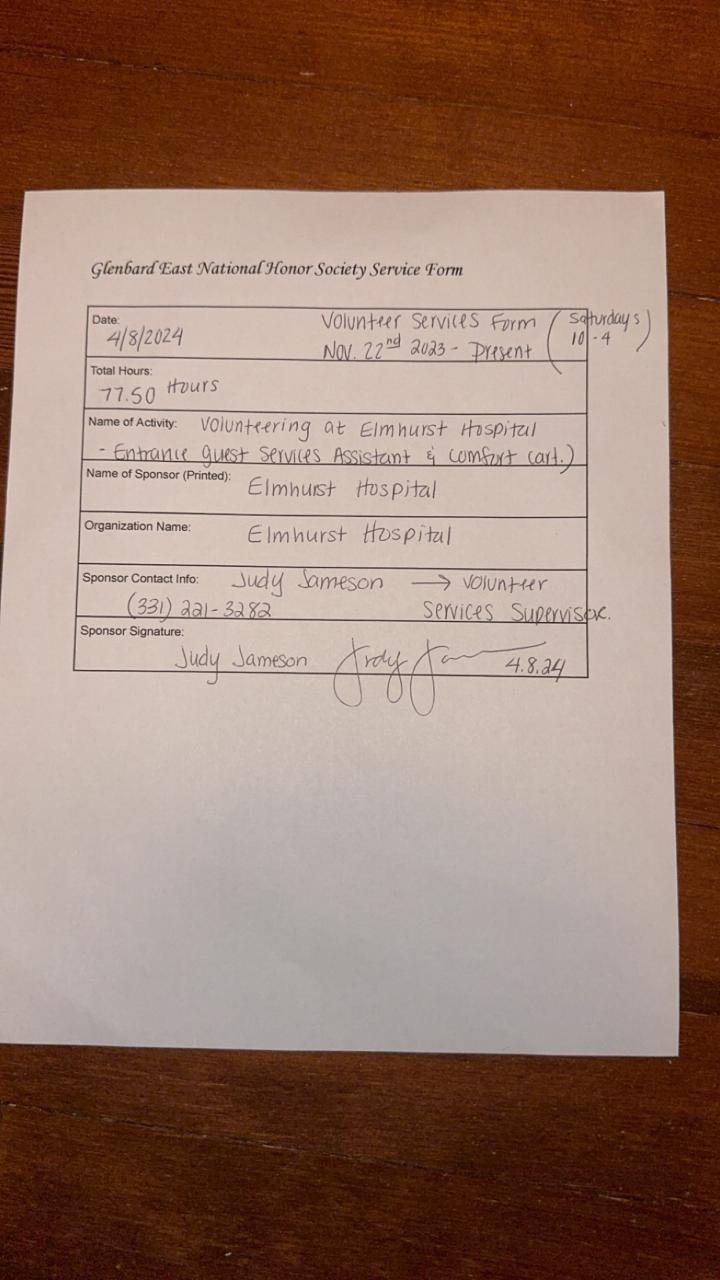 Glenbard East National Honor Society Service Form
Date: Volunteer Services Form (Saturdays
4/8/2024 Nov. 22nd 2023 - Present 10-4)
Total Hours:
77.50 Hours
Name of Activity: Volunteering at Elmhurst Hospital
- Entrance guest Services Assistant & comfort cart.)
Name of Sponsor (Printed):
Elmhurst Hospital
Organization Name:
Elmhurst Hospital
Sponsor Contact Info: Judy Jameson → Volunteer
(331) 221-3282 Services Supervisor.
Sponsor Signature:
Judy Jameson Judy Ja 4.8.24